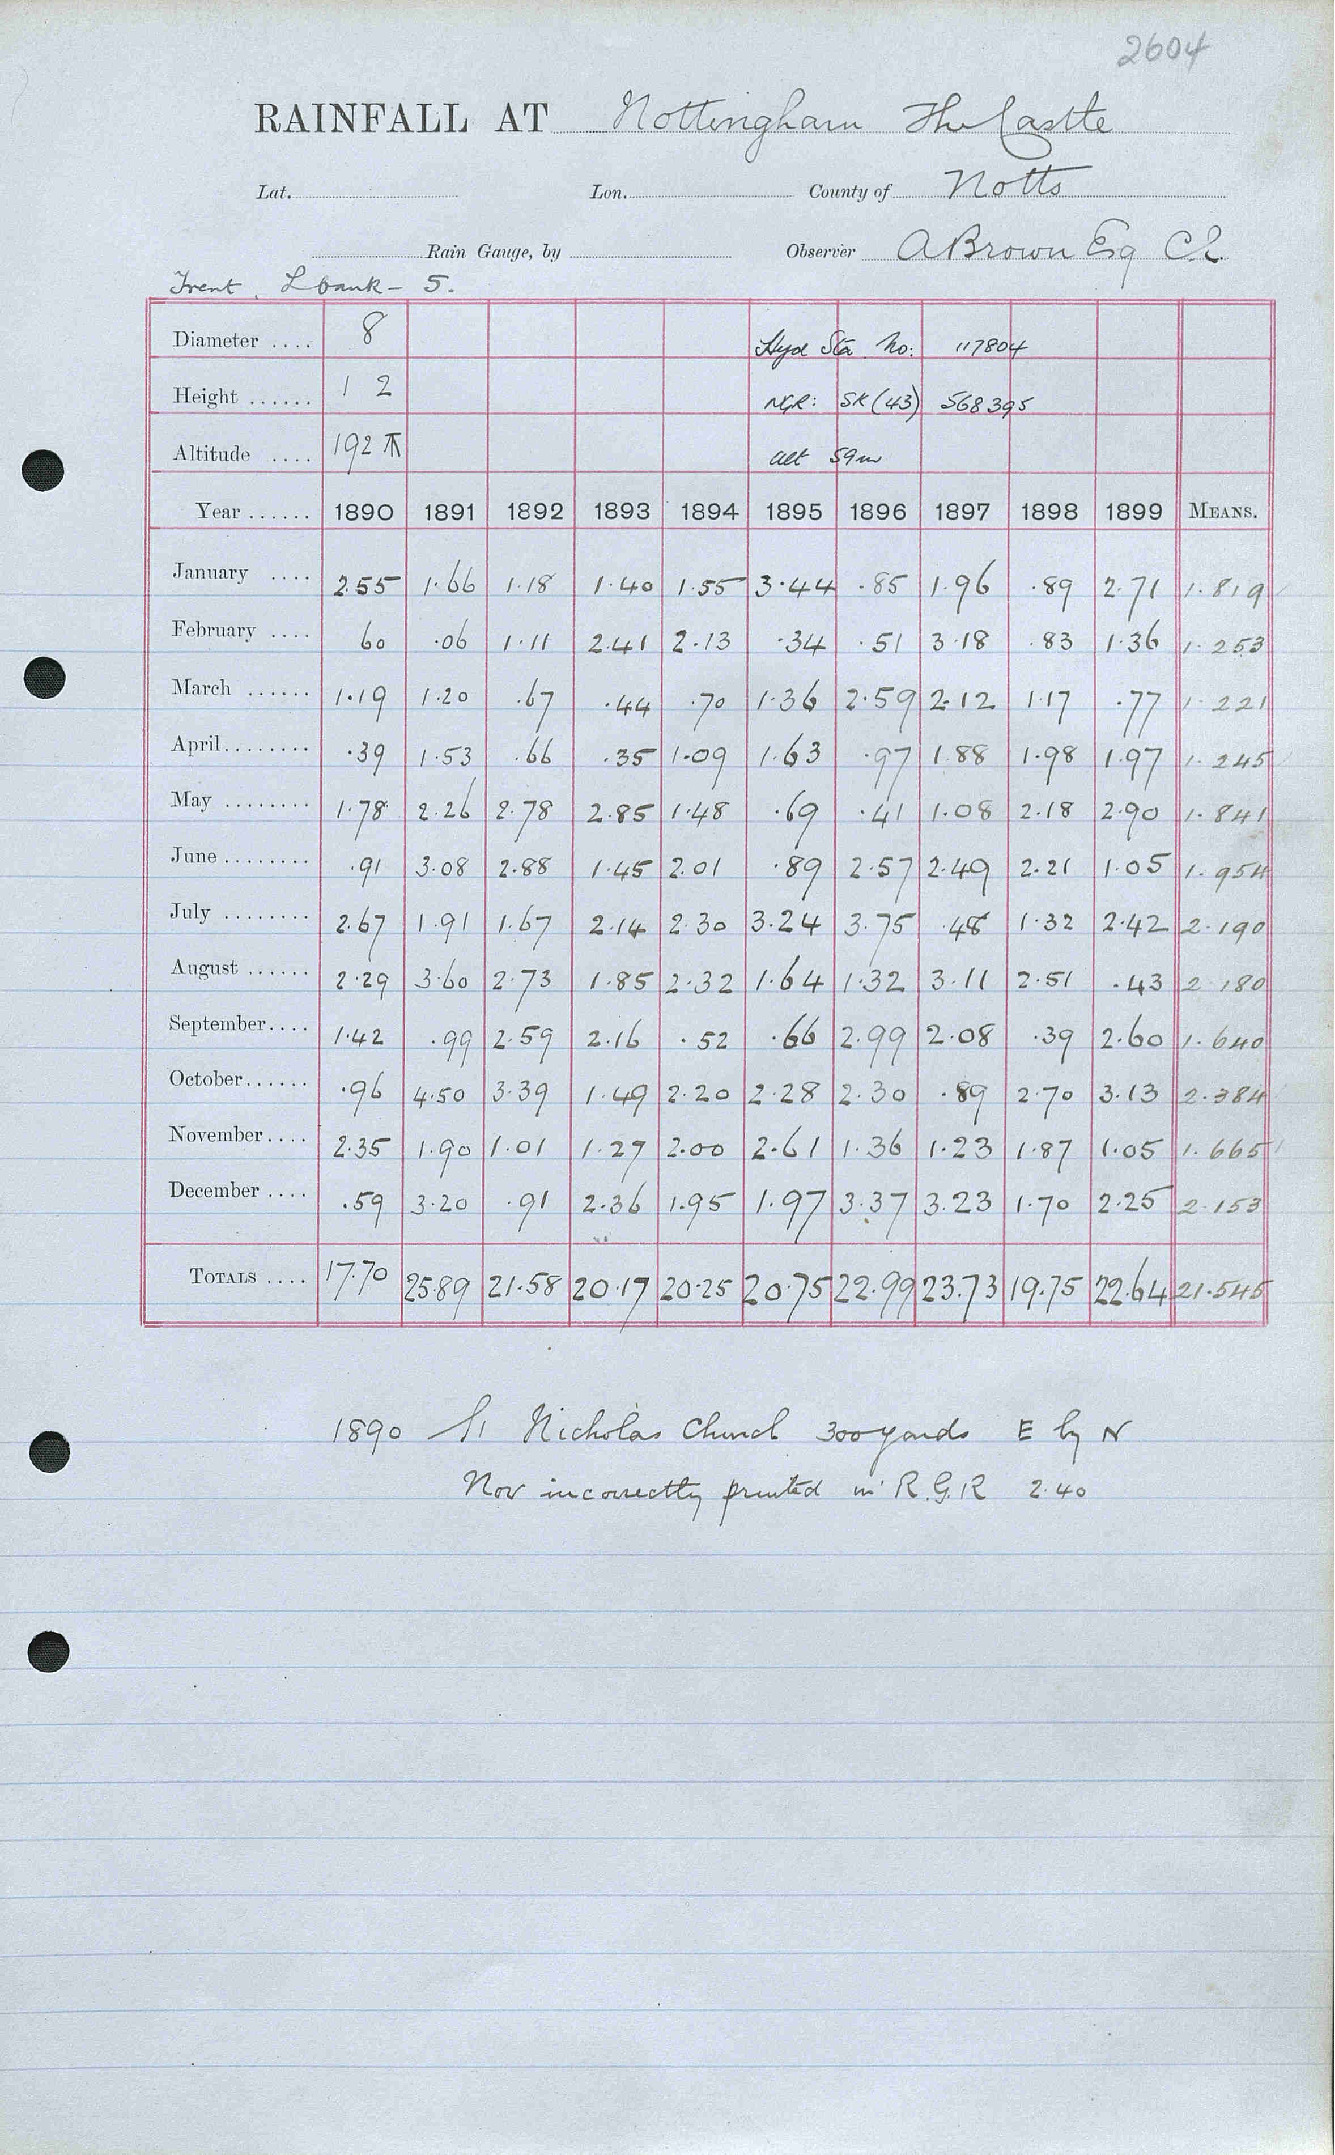 2604
RAINFALL AT Nottingham The Castle
Lat. Lon. County of Notts
Rain Gauge, by Observer A Brown Esq C.E.
Trent. L bank - 5.
Diameter .... 8 Hyd Sta No: 117804
Height ...... 1 2 NGR: SK (43) 568395
Altitude .... 192 alt 59m
Year ...... 1890 1891 1892 1893 1894 1895 1896 1897 1898 1899 MEANS.
January .... 2.55 1.66 1.18 1.40 1.55 3.44 .85 1.96 .89 2.71 1.819
February .... 60 .06 1.11 2.41 2.13 .34 .51 3.18 .83 1.36 1.253
March ...... 1.19 1.20 .67 .44 .70 1.36 2.59 2.12 1.17 .77 1.221
April ........ .39 1.53 .66 .35 1.09 1.63 .97 1.88 1.98 1.97 1.245
May ........ 1.78 2.26 2.78 2.85 1.48 .69 .41 1.08 2.18 2.90 1.841
June ........ .91 3.08 2.88 1.45 2.01 .89 2.57 2.49 2.21 1.05 1.954
July ........ 2.67 1.91 1.67 2.14 2.30 3.24 3.75 .48 1.32 2.42 2.190
August ...... 2.29 3.60 2.73 1.85 2.32 1.64 1.32 3.11 2.51 .43 2.180
September .... 1.42 .99 2.59 2.16 .52 .66 2.99 2.08 .39 2.60 1.640
October ...... .96 4.50 3.39 1.49 2.20 2.28 2.30 .89 2.70 3.13 2.384
November .... 2.35 1.90 1.01 1.27 2.00 2.61 1.36 1.23 1.87 1.05 1.665
December .... .59 3.20 .91 2.36 1.95 1.97 3.37 3.23 1.70 2.25 2.153
TOTALS .... 17.70 25.89 21.58 20.17 20.25 20.75 22.99 23.73 19.75 22.64 21.545
1890 St Nicholas Church 300 yards E by N
Nov incorrectly printed in R.G.R 2.40